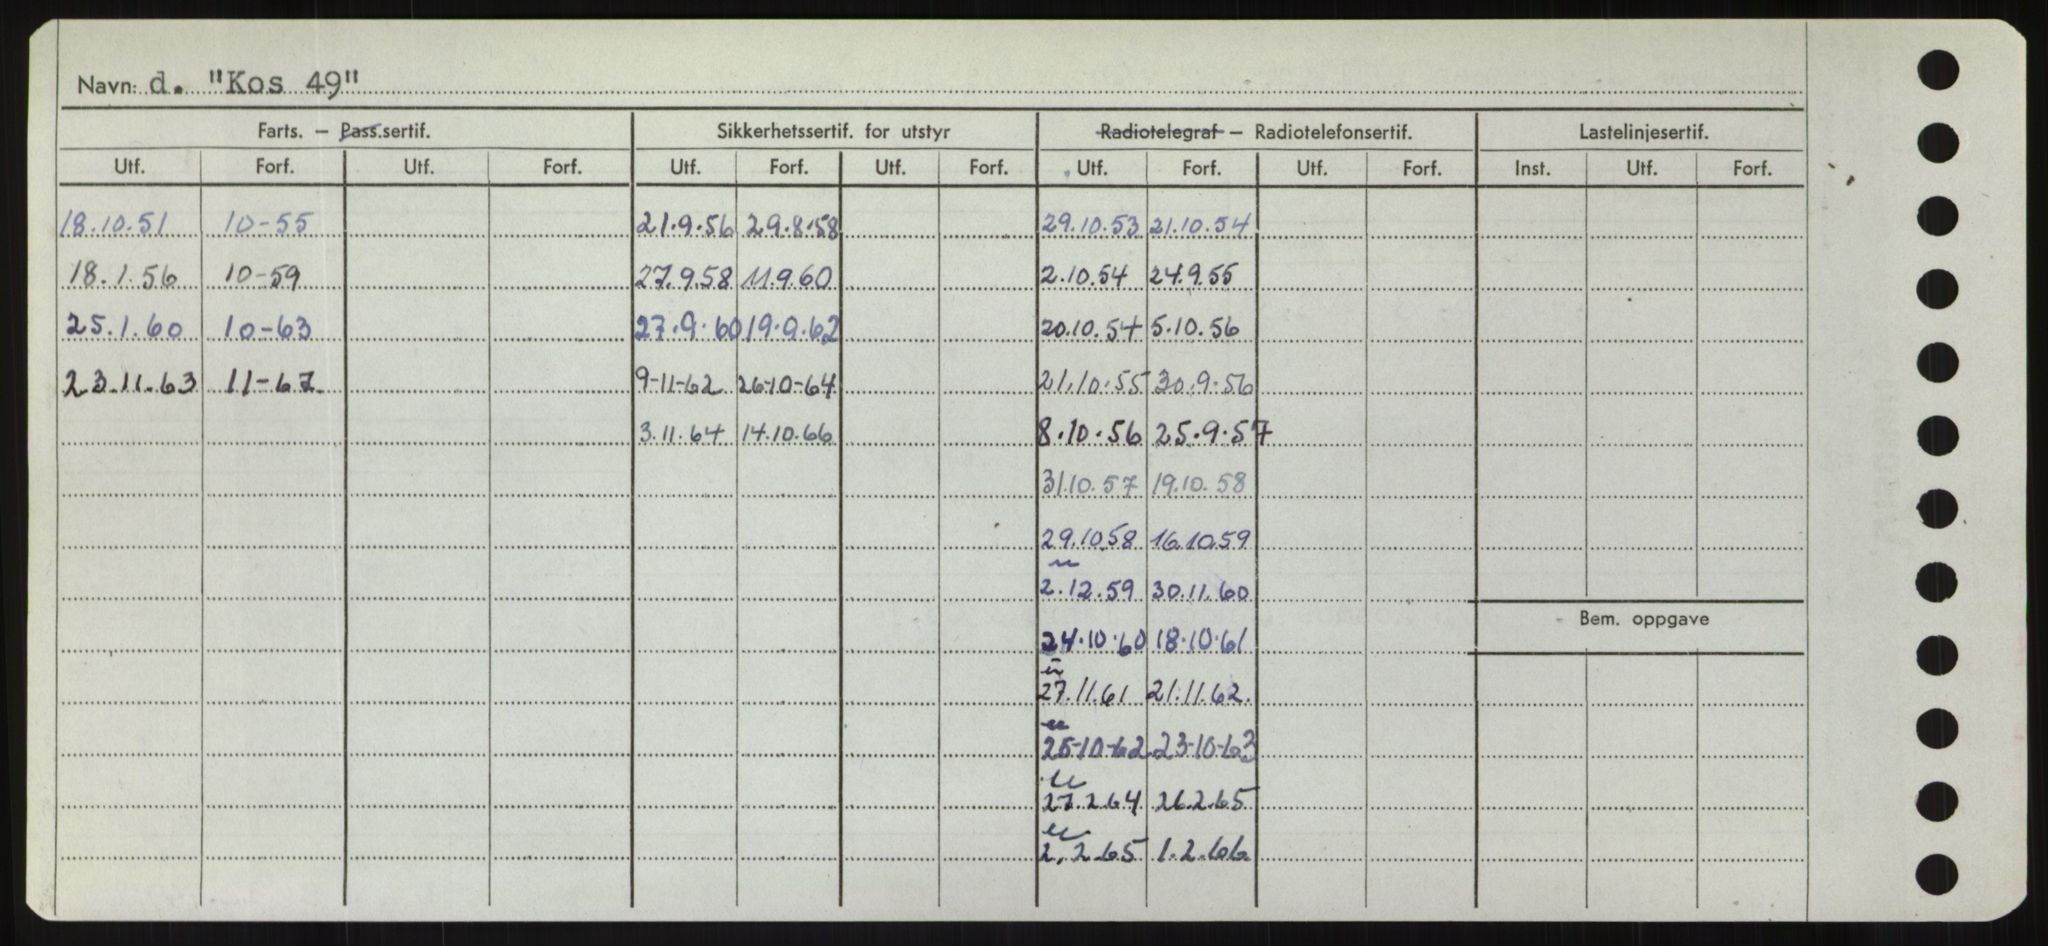 Navn: d. "Kos 49"
Farts. — Pass.sertif. Sikkerhetssertif. for utstyr Radiotelegraf — Radiotelefonsertif. Lastelinjesertif.
Utf. Forf. Utf. Forf. Utf. Forf. Utf. Forf. Utf. Forf. Utf. Forf. Inst. Utf. Forf.
18.10.51 10-55 21.9.56 29.8.58 29.10.53 21.10.54
18.1.56 10-59 27.9.58 11.9.60 2.10.54 24.9.55
25.1.60 10-63 27.9.60 19.9.62 20.10.54 5.10.56
23.11.63 11-67 9-11-62 26-10-64 21.10.55 30.9.56
3.11.64 14.10.66 8.10.56 25.9.57
31.10.57 19.10.58
29.10.58 16.10.59
2.12.59 30.11.60
Bem. oppgave
24.10.60 18.10.61
27.11.61 21.11.62.
25-10-62 23-10-63
27.2.64 26.2.65
2.2.65 1.2.66